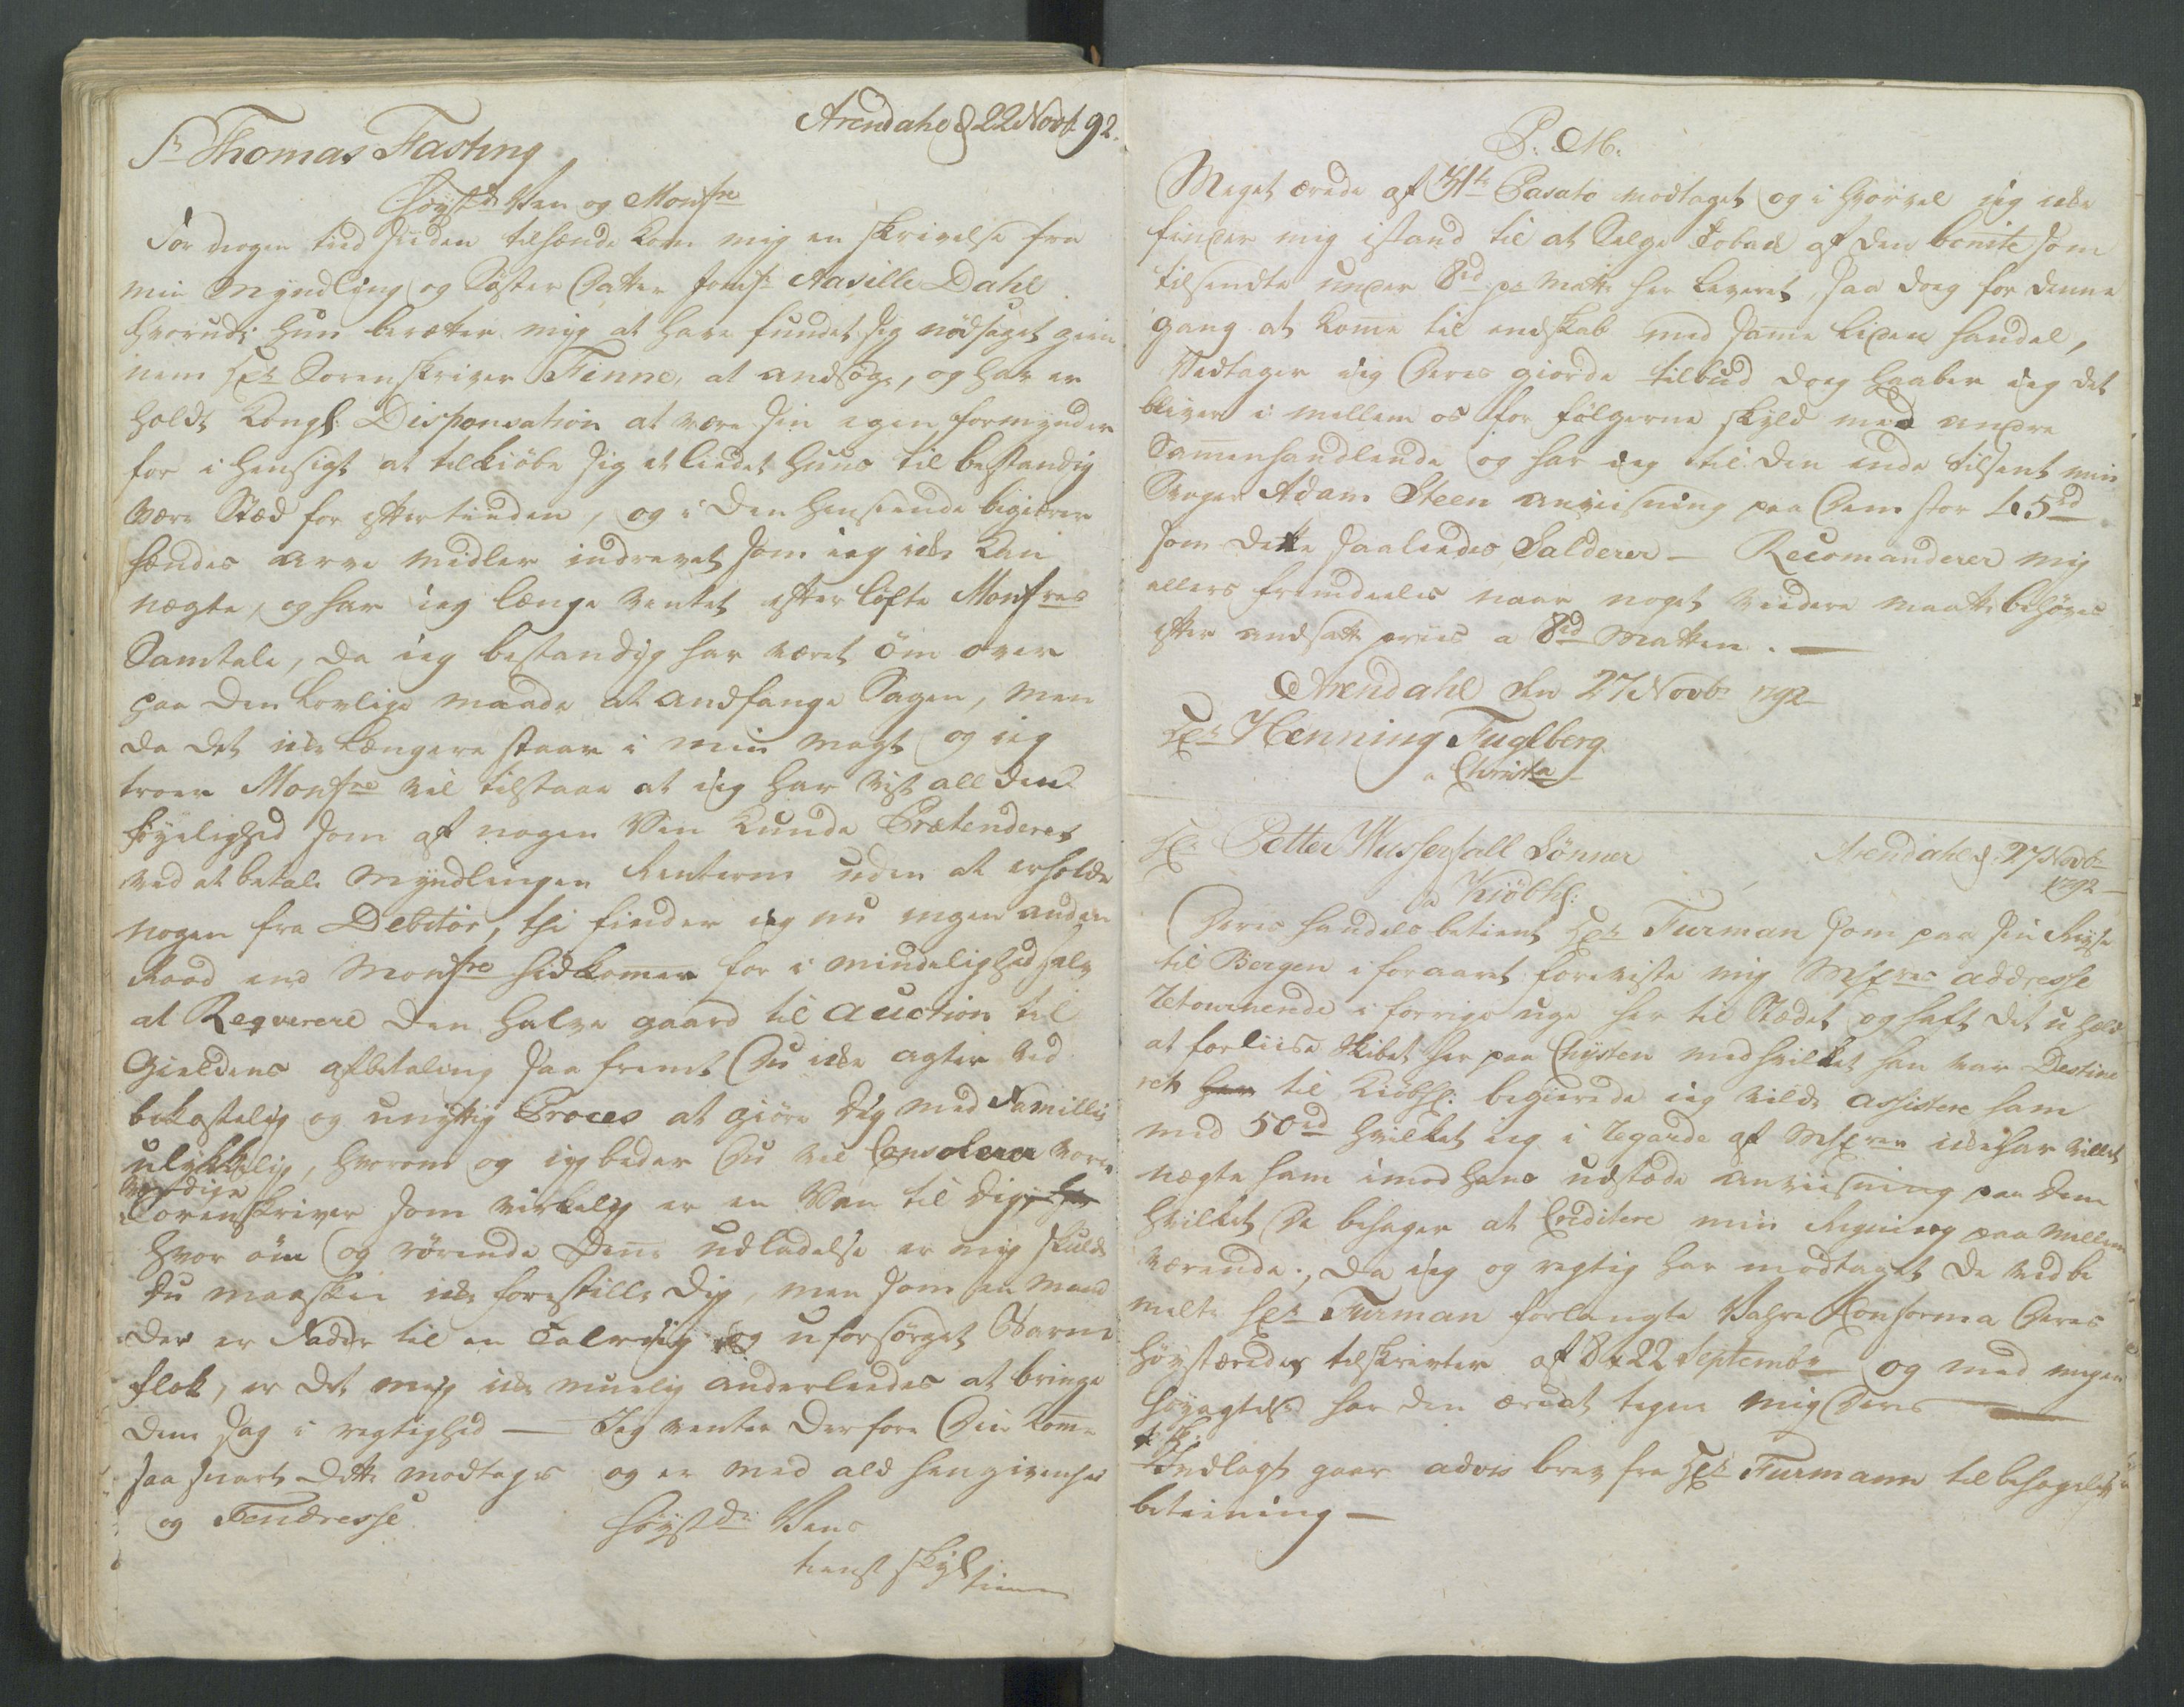 Arendahl d 22 Novbr 92.
Sr Thomas Fasting
Høystærede Ven og Monfre
For nogen tiid siiden tilhænde kom mig en skrivelse fra
min Myndling og Søster Datter Jomfr Aasille Dahl
hvorudi hun beretter mig at have fundet sig nødsaget gien
nem Hr Sorenskriver Finne, at andsøge, og har er
holdt Kongl: Dispensation at være sin egen formynder
for i hensigt at tilkiøbe sig et liedet Huus til bestandig
være Stæd for eftertiiden, og i den henseende begierer
hendes arve midler inddrevet som ieg icke kan
nægte, og har ieg længe ventet efter løfte Monfres
Samtale, da ieg bestandig har været øm over
paa den Lovlige maade at andfange Sagen, men
da det icke længere staar i min magt og ieg
troer Monfre vil tilstaae at ieg har vist all den
føyelighed som af nogen Ven kunde Prætenderes
ved at betale Myndlingen Renterne uden at erholde
nogen fra Debitor, thi finder ieg nu ingen anden
Raad end Monfre hidkommer for i mindelighed selv
at Reqverere den halve gaard til Auction til
Gieldens afbetaling saa fremt Du icke agter ved
bekostelig og unyttig Proces at giøre dig med Famillie
ulykkelig, hvorom og ieg beder Du vil Consolere vores
værdige
Sorenskriver som virkelig er en Ven til dig,
hvor øm og rørende Denne udladelse er mig skulde
du maaskee icke forestille dig, men som en Mand
der er Fader til en talriig og uforsørget Barne
flok, er det mig icke muelig anderleedes at bringe
dem sag i rigtighed — Jeg venter derfore Din komme
saa snart dette modtages og er med ald hengivenhed
og Tendresse Høystærede Vens
tienstskyldige tiener
P. M.
Meget ærede af 31te Pasato modtaget og i hvorvel ieg icke
finder mig istand til at Selge Toback af den bonite som
tilsendte under 8rd pr Matte her leveret, saa dog for denne
gang at komme til endskab med samme liden handel,
Vedtager ieg Deres giorde tilbud dog haaber ieg det
bliver i mellem os for følgerne skyld med andre
Sammenhandlende og har ieg til den ende tilsent min
Svoger Adam Steen anviisning paa Dem stor 45rd
som dette saaleedes Salderer — Recomanderer mig
ellers fremdeeles naar noget viidere maatte behøves
efter andsatte priis a 8rd Matten. —
Arendahl den 27 Novbr 1792
Hr Henning Fuglberg
a Christa
Hr Petter Wasserfall Sønner Arendahl d. 27 Novbr
1792
a Kiöbhn:
Deres handels betient Hr Furman som paa sin Reyse
til Bergen i foraaret foreviste mig Mshrrs addresse
Retournerende i forrige uge her til Stædet og haft det u held
at forliise Skibet her paa Kysten med hvilket han var Destine
ret til Kiøbhn: begierede ieg vilde assistere ham
med 50rd hvilket ieg i Regarde af Mshrrer icke har villet
nægte ham imod hans udstæde anviisning paa Dem
hvilket De behager at Creditere min Regning paa mellem
værende., Da ieg og rigtig har modtaget de ved be
melte Hr Furman forlangte Vahre Conforma Deres
høystærede tilskrivter af 8 & 22 Septembr og med megen
høyagtelse har den ære at tegne mig Deres
Indlagt gaar advis brev fra Hr Furmann til behagelig
betiening —